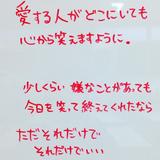 愛する人がどこにいても
心から笑えますように。
少しくらい嫌なことがあっても
今日を笑って終えてくれたなら
ただそれだけで
それだけでいい